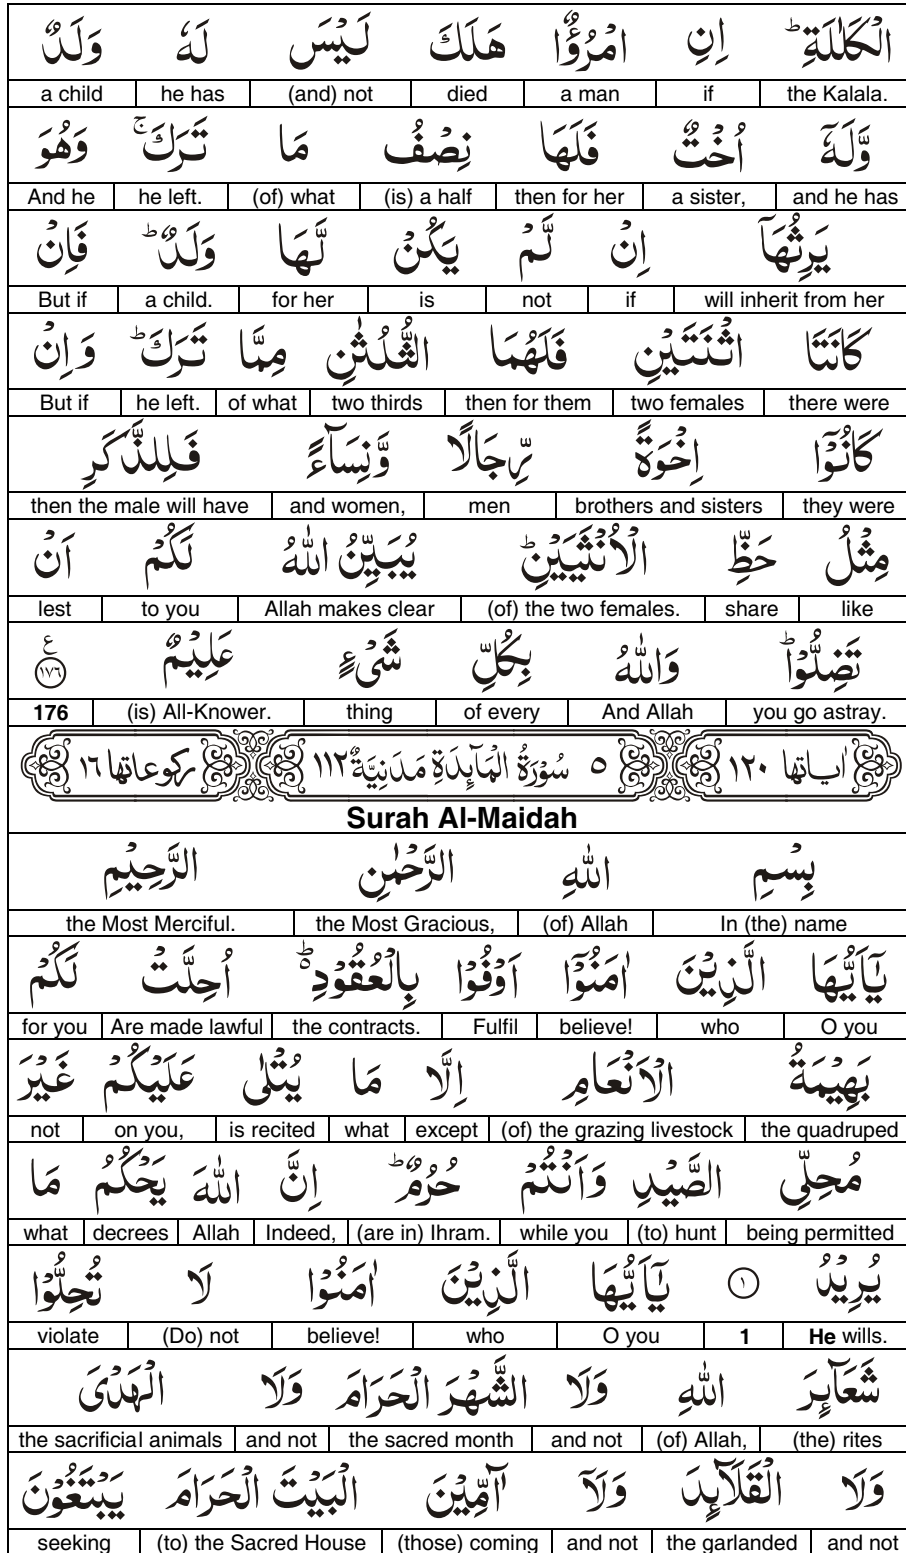 الۡكَلٰلَةِ ؕ اِنِ امۡرُؤٌا هَلَكَ لَيۡسَ لَهٗ وَلَدٌ
the Kalala. if a man died (and) not he has a child
وَّلَهٗۤ اُخۡتٌ فَلَهَا نِصۡفُ مَا تَرَكَ ۚ وَهُوَ
and he has a sister, then for her (is) a half (of) what he left. And he
يَرِثُهَاۤ اِنۡ لَّمۡ يَكُنۡ لَّهَا وَلَدٌ ؕ فَاِنۡ
will inherit from her if not is for her a child. But if
كَانَتَا اثۡنَتَيۡنِ فَلَهُمَا الثُّلُثٰنِ مِمَّا تَرَكَ ؕ وَاِنۡ
there were two females then for them two thirds of what he left. But if
كَانُوۡۤا اِخۡوَةً رِّجَالًا وَّنِسَآءً فَلِلذَّكَرِ
they were brothers and sisters men and women, then the male will have
مِثۡلُ حَظِّ الۡاُنۡثَيَيۡنِ ؕ يُبَيِّنُ اللّٰهُ لَكُمۡ اَنۡ
like share (of) the two females. Allah makes clear to you lest
تَضِلُّوۡا ؕ وَاللّٰهُ بِكُلِّ شَىۡءٍ عَلِيۡمٌ ع ١٧٦
you go astray. And Allah of every thing (is) All-Knower. 176
اٰياتها ١٢٠ ٥ سُوۡرَةُ الۡمَآئِدَةِ مَدَنِيَّةٌ ١١٢ ركوعاتها ١٦
Surah Al-Maidah
بِسۡمِ اللّٰهِ الرَّحۡمٰنِ الرَّحِيۡمِ
In (the) name (of) Allah the Most Gracious, the Most Merciful.
يٰۤاَيُّهَا الَّذِيۡنَ اٰمَنُوۡۤا اَوۡفُوۡا بِالۡعُقُوۡدِ ؕ اُحِلَّتۡ لَكُمۡ
O you who believe! Fulfil the contracts. Are made lawful for you
بَهِيۡمَةُ الۡاَنۡعَامِ اِلَّا مَا يُتۡلٰى عَلَيۡكُمۡ غَيۡرَ
the quadruped (of) the grazing livestock except what is recited on you, not
مُحِلِّى الصَّيۡدِ وَاَنۡتُمۡ حُرُمٌ ؕ اِنَّ اللّٰهَ يَحۡكُمُ مَا
being permitted (to) hunt while you (are in) Ihram. Indeed, Allah decrees what
يُرِيۡدُ ١ يٰۤاَيُّهَا الَّذِيۡنَ اٰمَنُوۡا لَا تُحِلُّوۡا
He wills. 1 O you who believe! (Do) not violate
شَعَآئِرَ اللّٰهِ وَلَا الشَّهۡرَ الۡحَرَامَ وَلَا الۡهَدۡىَ
(the) rites (of) Allah, and not the sacred month and not the sacrificial animals
وَلَا الۡقَلَآئِدَ وَلَاۤ آمِّيۡنَ الۡبَيۡتَ الۡحَرَامَ يَبۡتَغُوۡنَ
and not the garlanded and not (those) coming (to) the Sacred House seeking